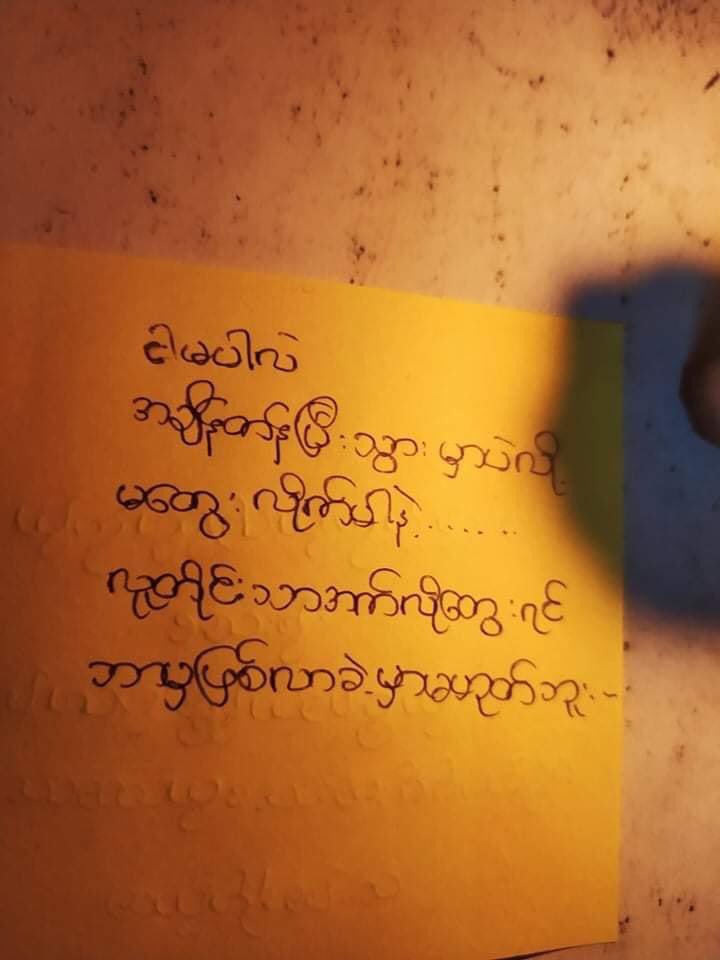 ငါမပါလဲ
အချိန်တန်ပြီးသွားမှာပဲလို့
မတွေးလိုက်ပါနဲ့......
လူတိုင်းသာအဲ်လိုတွေးရင်
ဘာမှဖြစ်လာခဲ့မှာမဟုတ်ဘူး--